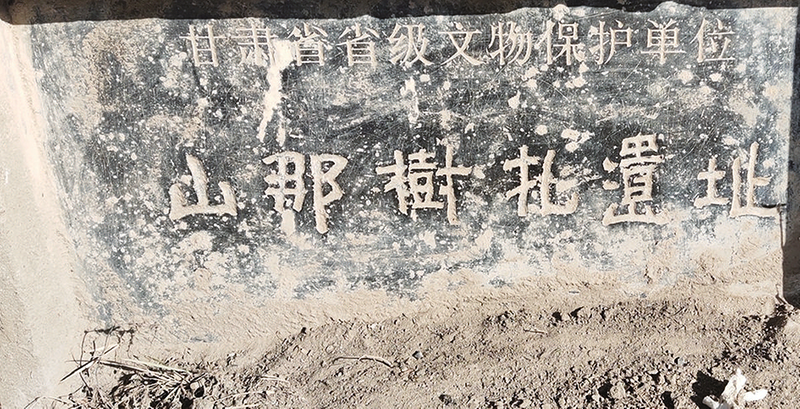 甘肃省省级文物保护单位
山那樹扎遗址